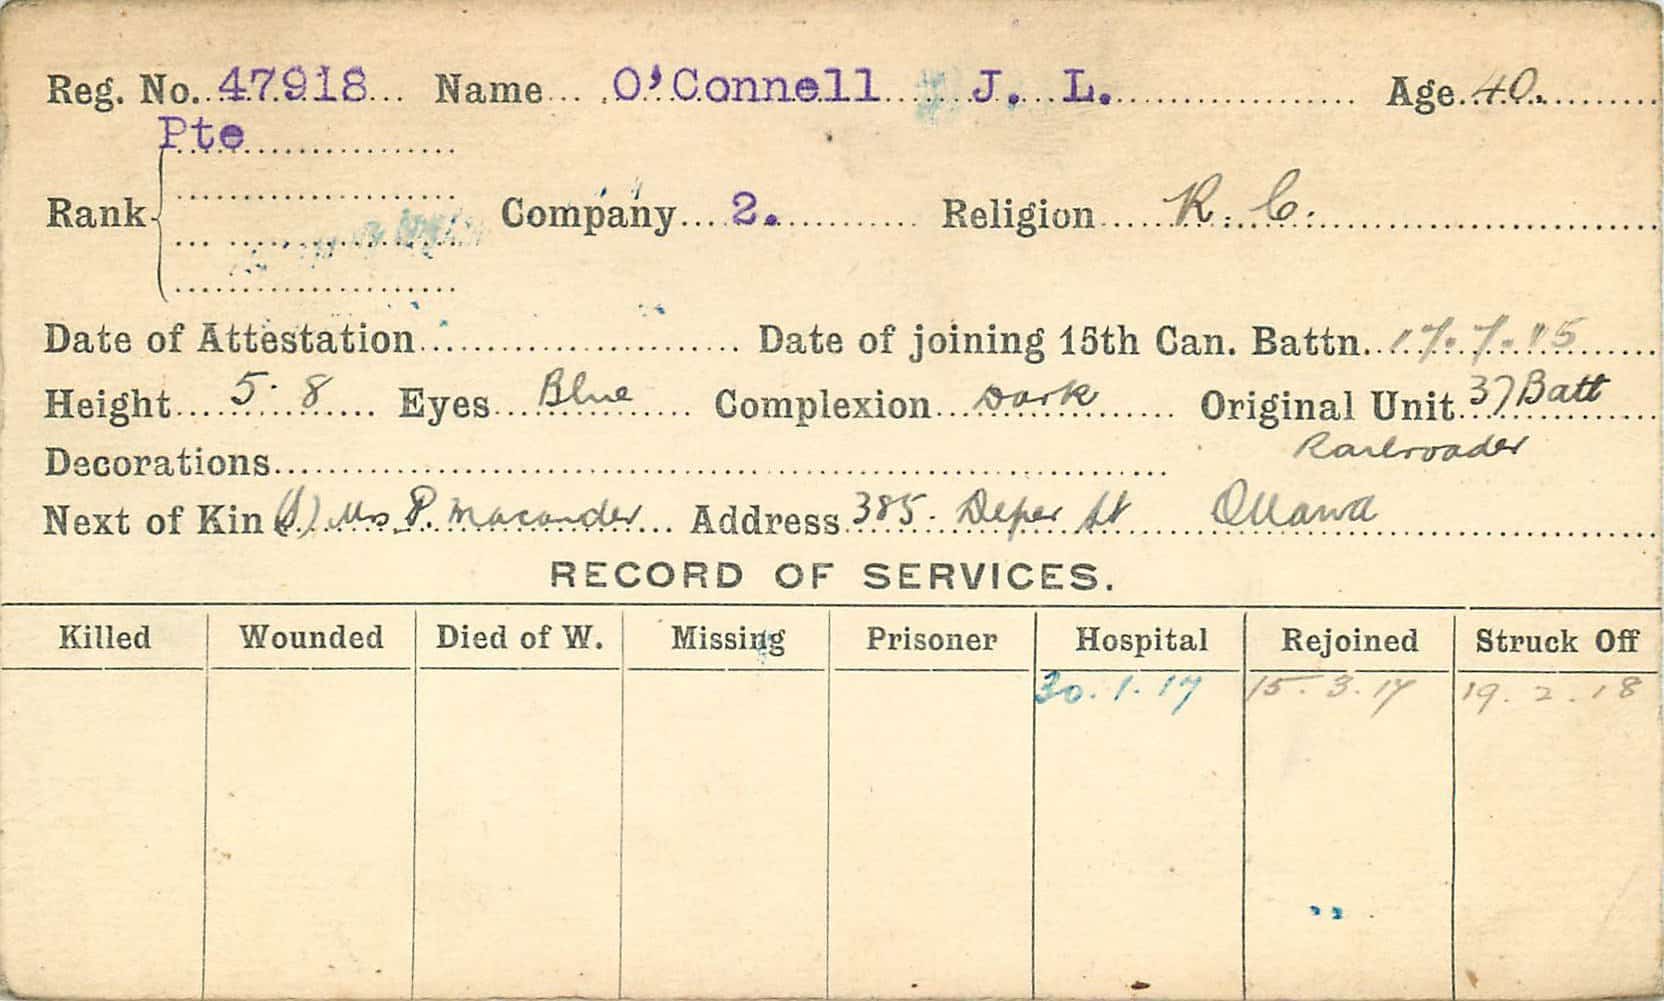 Reg. No. 47918 Name O'Connell J. L. Age 40.
Pte
Rank Company 2. Religion R. C.
Date of Attestation Date of joining 15th Can. Battn. 17.7.15
Height 5.8 Eyes Blue Complexion Dark Original Unit 37 Batt
Decorations Railroader
Next of Kin Mrs P. Address 385. St Ottawa
RECORD OF SERVICES.
Killed Wounded Died of W. Missing Prisoner Hospital Rejoined Struck Off
30.1.17 15.3.17 19.2.18